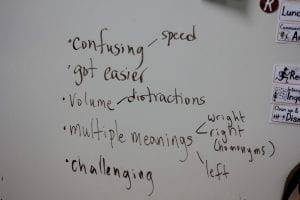 • confusing – speed
• got easier
• volume – distractions
• multiple meanings
wright
right
(homonyms)
left
• challenging
R
Lunc